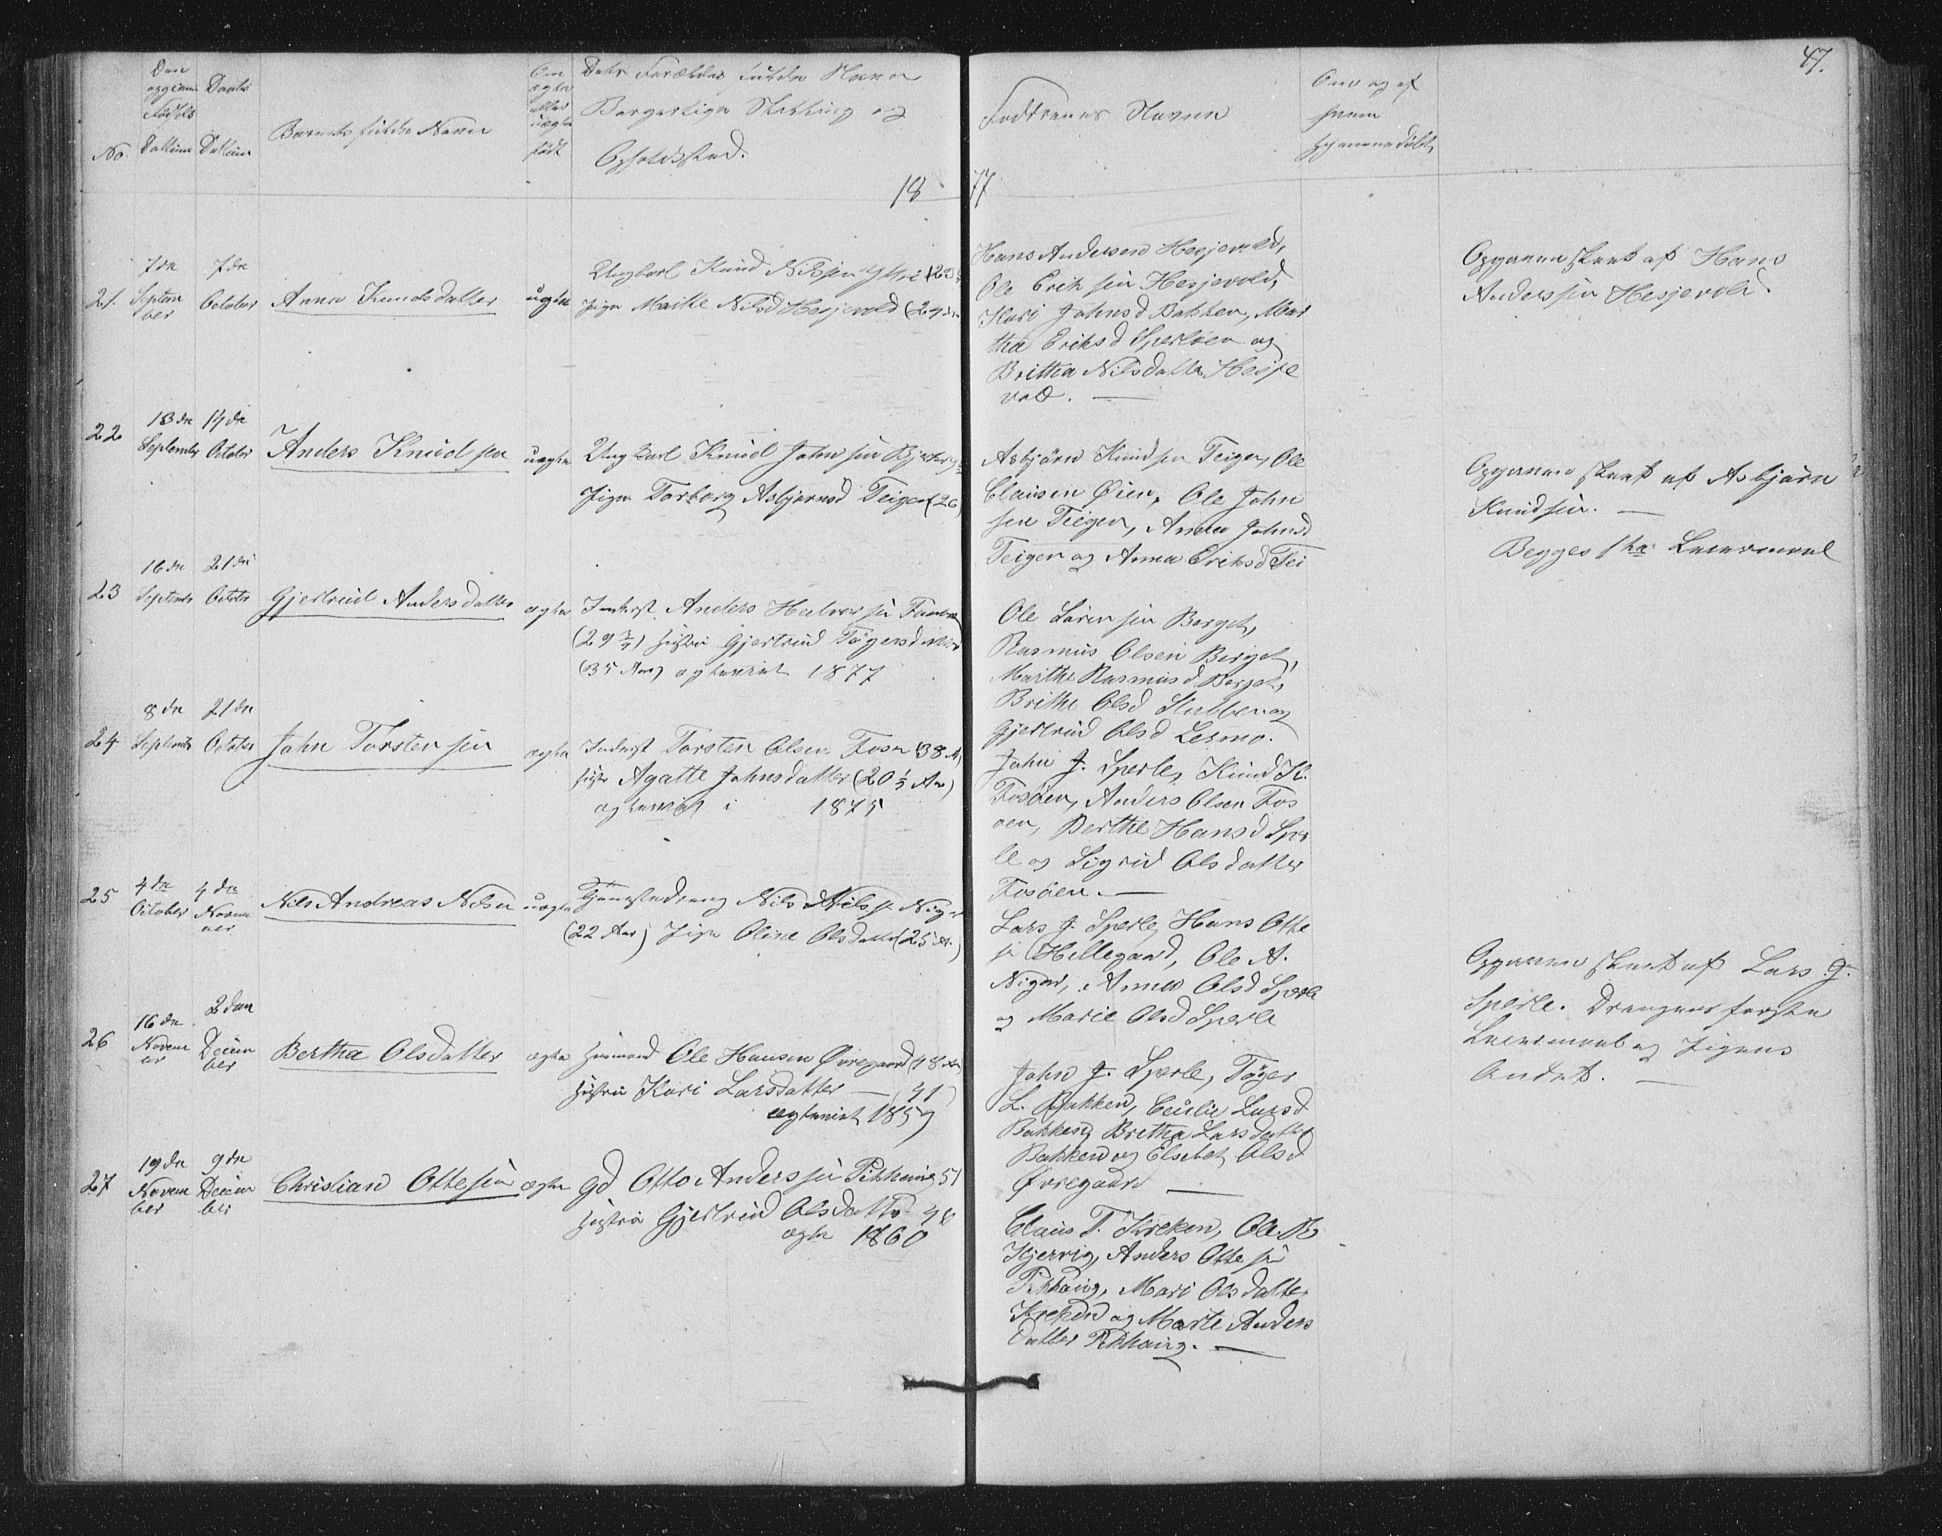 47.
No.
Den opgivne Føds. Dattum
Daabs Dattum
Barnets fulde Navn
Om ægte eller uægte født
Dets Forældres fulde Navn
Borgerlige Stilling og
Opholdssted.
Faddernes Navne
Om og af
hvem
hjemmedøbt
1877
21. 7de September 7de October Anna Knudsdatter uægte
Ungkarl Knud Nilssen
Pige Marthe Nilsd Hesjevold (29
Hans Andersen Hesjevold,
Ole Erik sen Hesjevold,
Kari Johnsd Bakken, Mar
tha Eriksd Sperløen og
Brittha Nilsdatter Hesje
vold.
Opgivven skat af Hans
Anderssen Hesjevold.
22 13de September 14de October Anders Knudsen uægte
Ungkarl Knud Johnsen
Pige Torborg Asbjørnsd Teigen (26)
Asbjørn Knudsen Teigen, Ole
Clausen Øien, Ole John
sen Teigen, Anne Johnsd
Teigen og Anna Eriksd Tei
af Asbjørn
Knudsen.
Begges 1ste Leiermaal
23 16de September 21de October Gjertrud Andersdatter ægte
Inderst Anders Halvorsen
(29 hustru Gjertrud Tøgersdatter
(35 Aar) ægteviet 1877
Ole Sørensen Berget,
Rasmus Olsen Berget,
Marthe Rasmusd Berget,
Brithe Olsd Stubben og
Gjertrud Olsd Lermo.
24 8de September 21de October John Torstensen ægte
Inderst Torsten Olsen Fosøen (38 A)
hustru Agatte Johnsdatter (20 1/2 Aar)
ægteviet i 1875
John J. Sperle, Knud K.
Fosøen, Anders Olsen Fos
øen, Berthe Hansd Sper
le og Sigrid Olsdatter
Fosøen.
25 4de October 4de November Nils Andreas Nilsen uægte
Tjenestedreng Nils Nilss
(22 Aar) Pige Oline Olsdatter (25 A.)
Lars J. Sperle, Hans Otte
sen Hillegaard, Ole A.
Anne Olsd Sperle
og Marie Olsd Sperle
af Lars J.
Sperle. Drengens første
Leiermaal og Pigens
Andet.
26 16de November 2den December Bertha Olsdatter ægte
Husmand Ole Hansen Øvregaard (48 Aar
hustru Kari Larsdatter (41)
ægteviet 1857
John J. Sperle, Tøger
L. Bakken, Cecilie Larsd
Bakken, Bretha Larsdatter
Bakken og Elsebet Olsd
Øvregaard
27 19de November 9de December Christian Ottesen ægte
Gd Otto Anderssen Pikhaug 51
hustru Gjertrud Olsdatter
ægtev 1860
Claus T. Kreken, Ole R
Kjerrig, Anders Otte sen
Pikhaug, Mari Olsdatter
Kreken og Marte Anders
datter Pikhaug.